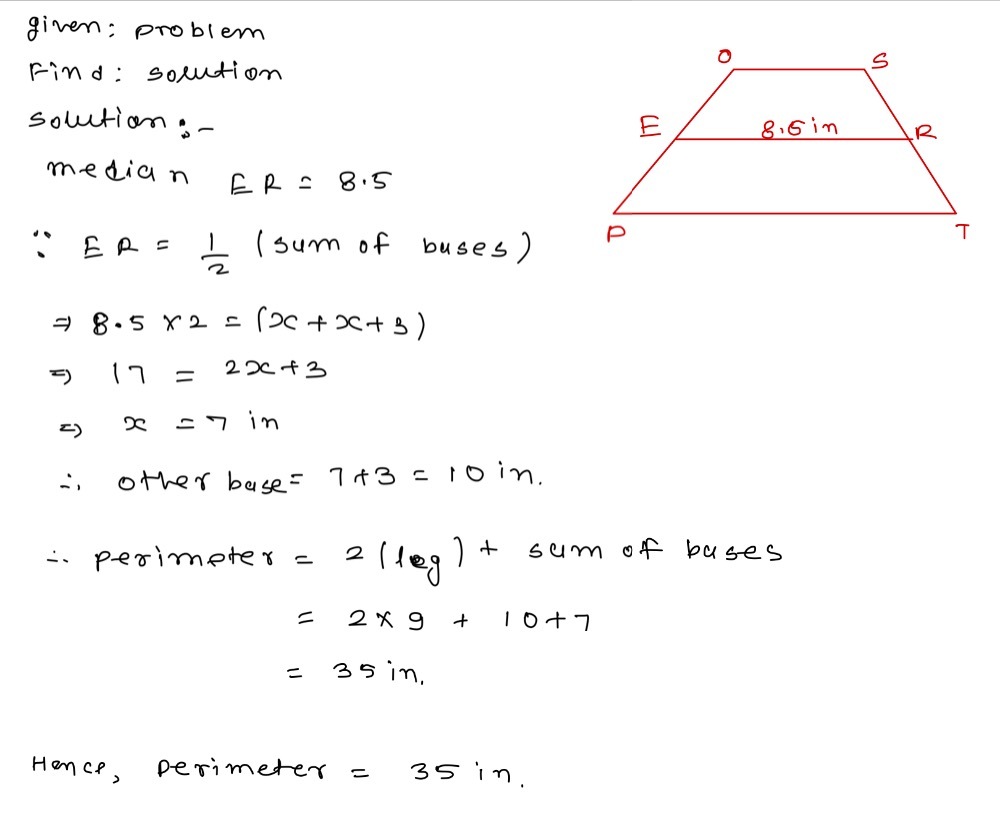 given: problem
Find: solution
solution:-
median ER = 8.5
∵ ER = 1/2 (sum of buses)
⇒ 8.5 × 2 = (x + x + 3)
⇒ 17 = 2x + 3
⇒ x = 7 in
∴ other base = 7+3 = 10 in.
∴ perimeter = 2 (leg) + sum of buses
= 2 × 9 + 10+7
= 35 in.
Hence, perimeter = 35 in.
O S
E 8.5 in R
P T